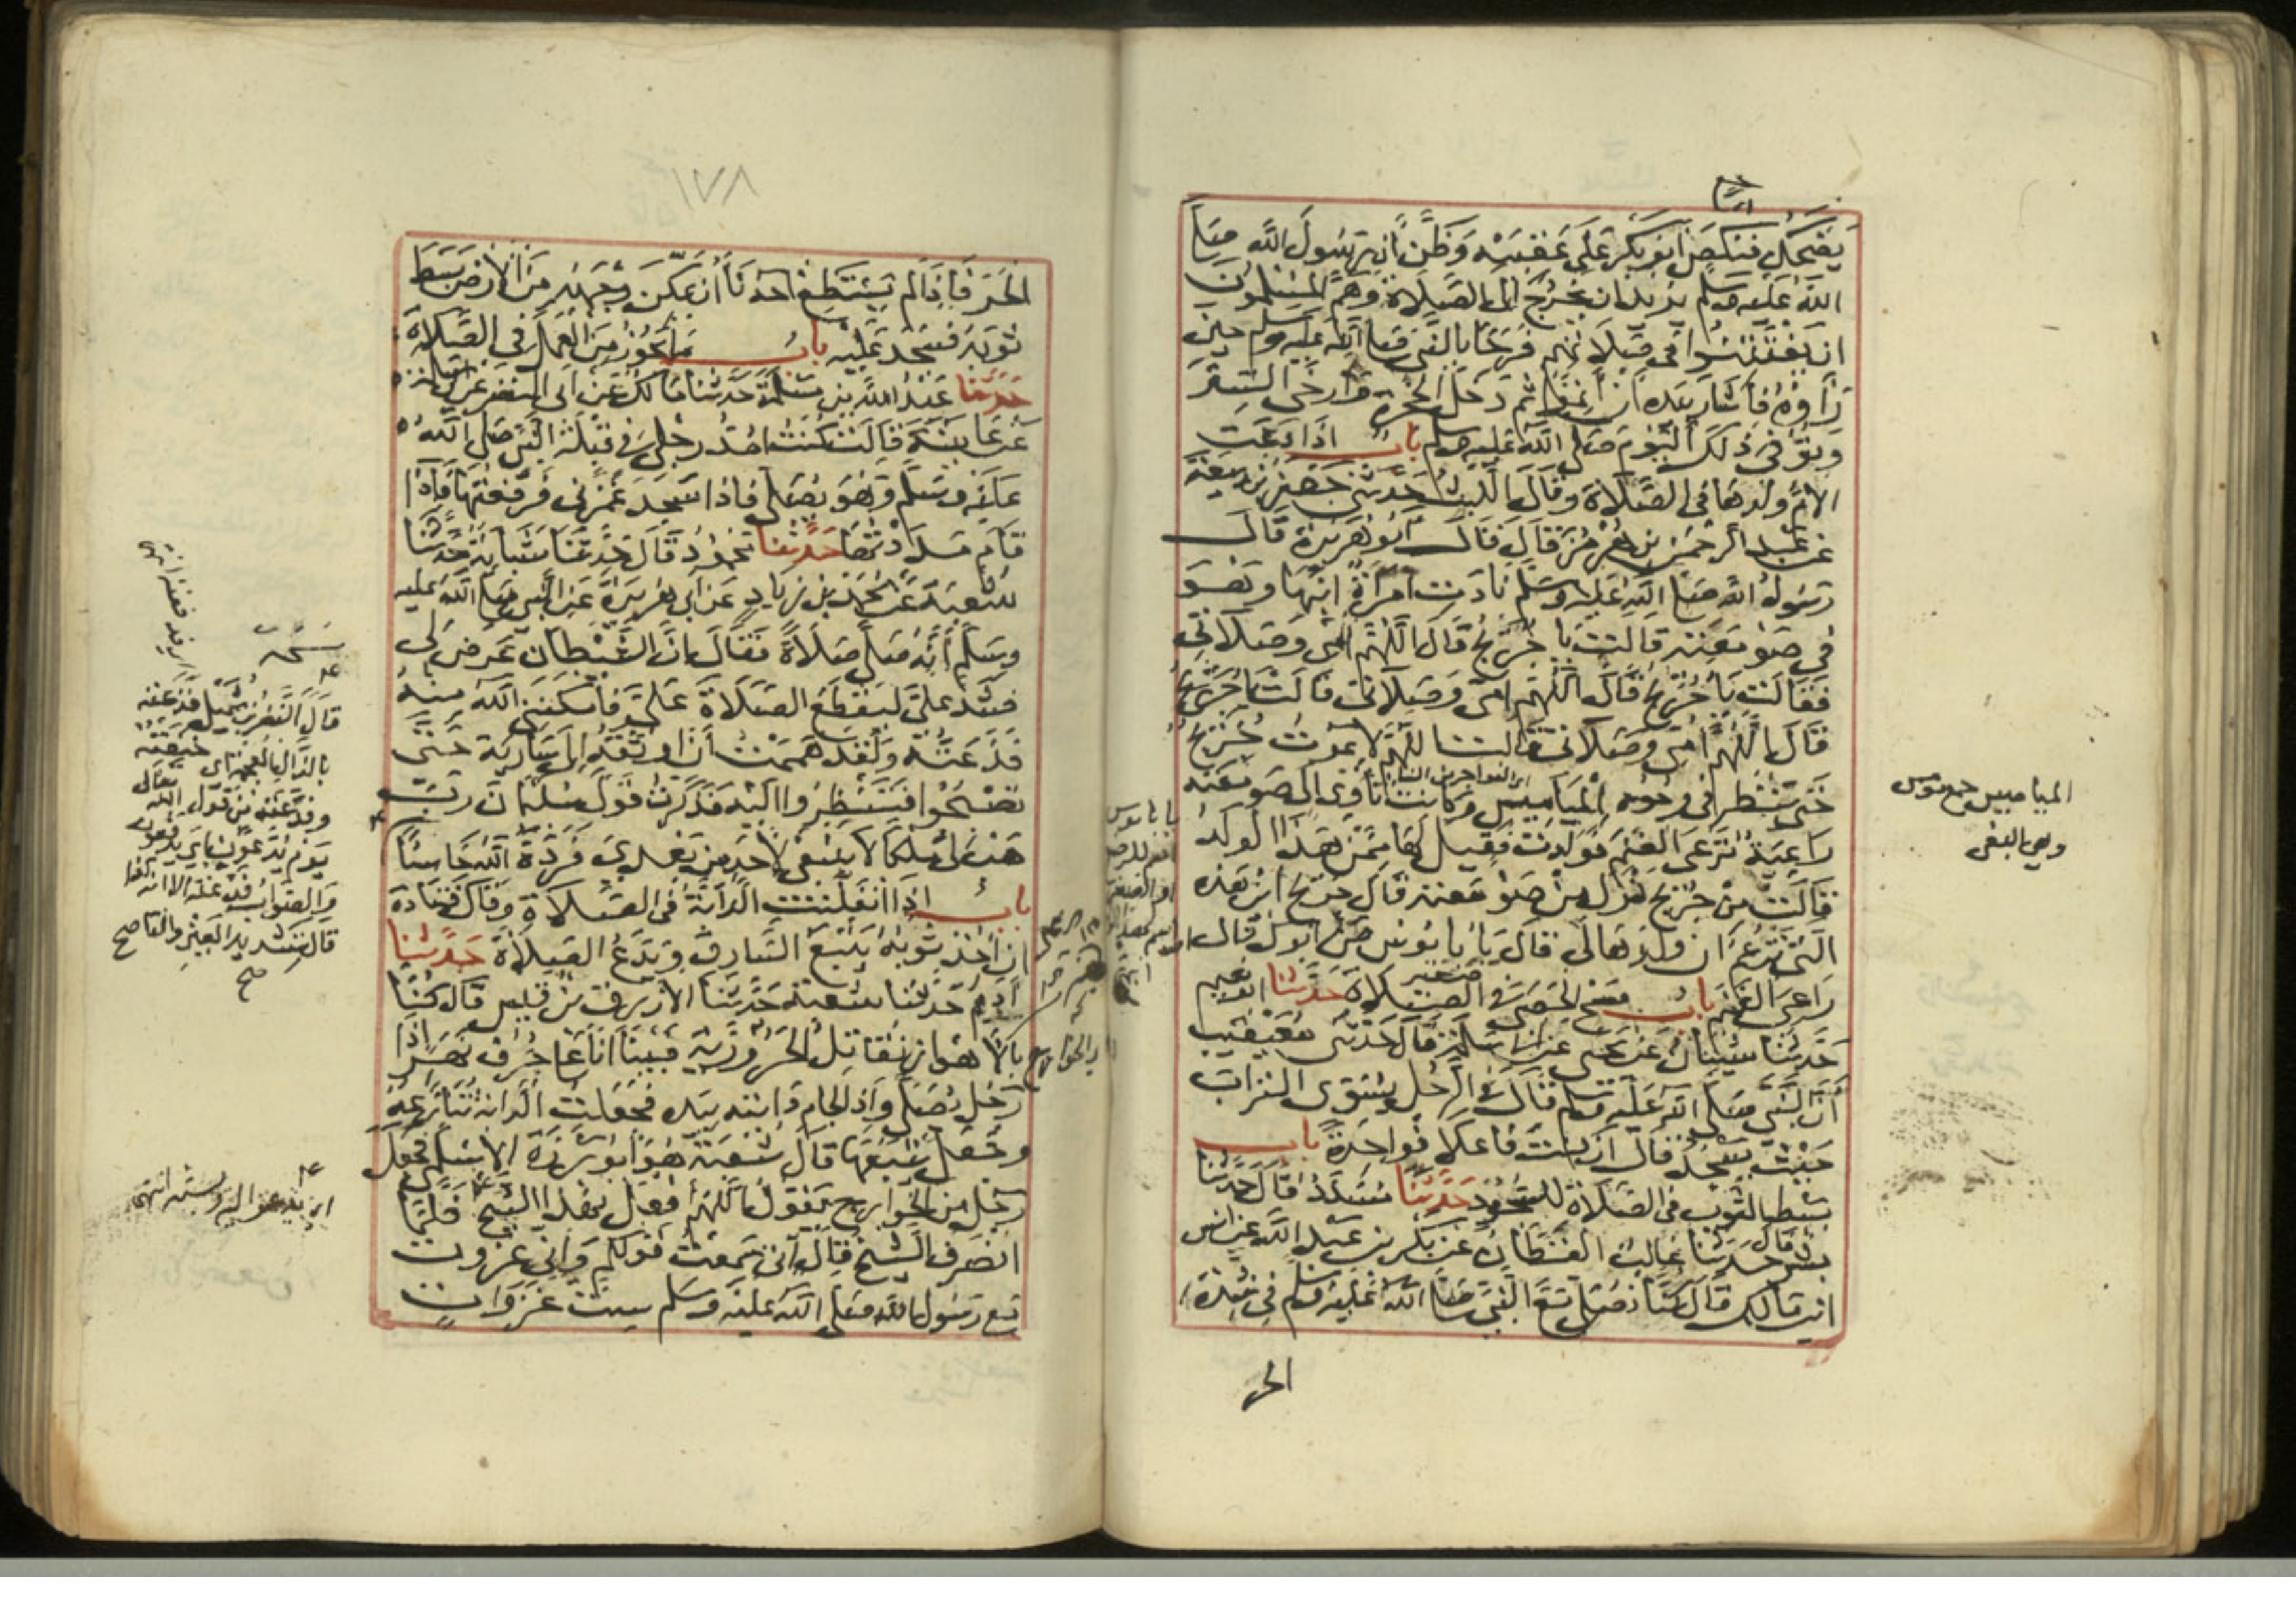 يضحك فنكص ابو بكر على عقبيه وظن ان رسول الله صلى
الله عليه وسلم يريد ان يخرج الى الصلاة وهم المسلمون
ان يفتتنوا في صلاتهم فرحا بالنبي صلى الله عليه وسلم حين
رأوه فأشار بيده ان أتموا ثم دخل الحجرة وأرخى الستر
وتوفي ذلك اليوم صلى الله عليه وسلم باب اذا دعت
الام ولدها في الصلاة وقال الليث حدثني جعفر بن ربيعة
عن عبد الرحمن بن هرمز قال قال ابو هريرة قال
رسول الله صلى الله عليه وسلم نادت امرأة ابنها وهو
في صومعته قالت يا جريج قال اللهم امي وصلاتي
فقالت يا جريج قال اللهم امي وصلاتي قالت يا جريج
قال اللهم امي وصلاتي قالت اللهم لا يموت جريج
حتى ينظر في وجوه المياميس وكانت تأوى الى صومعته
راعية ترعى الغنم فولدت فقيل لها ممن هذا الولد
فقالت من جريج نزل من صومعته قال جريج اين هذه
التي تزعم ان ولدها لي قال يا بابوس من ابوك قال
راعي الغنم باب مسح الحصى في الصلاة حدثنا ابو نعيم
حدثنا شيبان عن يحيى عن ابي سلمة قال حدثني معيقيب
أن النبي صلى الله عليه وسلم قال في الرجل يسوي التراب
حيث يسجد قال ان كنت فاعلا فواحدة باب
بسط الثوب في الصلاة للسجود حدثنا مسدد قال حدثنا
بشر قال حدثنا غالب القطان عن بكر بن عبد الله عن انس
ابن مالك قال كنا نصلي مع النبي صلى الله عليه وسلم في شدة
الحر
المياميس جمع مومس
وهي البغي
١٧٨
الحر فاذا لم يستطع احدنا أن يمكن وجهه من الارض بسط
ثوبه فسجد عليه باب ما يجوز من العمل في الصلاة
حدثنا عبد الله بن مسلمة حدثنا مالك عن ابي النضر عن ابي سلمة
عن عائشة قالت كنت امد رجلي في قبلة النبي صلى الله
عليه وسلم وهو يصلي فاذا سجد غمزني فرفعتها فاذا
قام مددتها حدثنا محمود قال حدثنا شبابة حدثنا
شعبة عن محمد بن زياد عن ابي هريرة عن النبي صلى الله عليه
وسلم أنه صلى صلاة فقال ان الشيطان عرض لي
فشد علي ليقطع الصلاة علي فأمكنني الله منه
فذعته ولقد هممت أن اوثقه الى سارية حتى
تصبحوا فتنظروا اليه فذكرت قول سليمان رب
هب لي ملكا لا ينبغي لاحد من بعدي فرده الله خاسئا
باب اذا انفلتت الدابة في الصلاة وقال قتادة
ان اخذ ثوبه يتبع السارق ويدع الصلاة حدثنا
آدم حدثنا شعبة حدثنا الازرق بن قيس قال كنا
بالاهواز نقاتل الحرورية فبينا انا على جرف نهر اذا
رجل يصلي واذا لجام دابته بيده فجعلت الدابة تنازعه
وجعل يتبعها قال شعبة هو أبو برزة الاسلمي فجعل
رجل من الخوارج يقول اللهم افعل بهذا الشيخ فلما
انصرف الشيخ قال اني سمعت قولكم واني غزوت
مع رسول الله صلى الله عليه وسلم ست غزوات
قال النضر بن شميل فذعته
بالذال المعجمة اي خنقته
وفدعته من قول الله تعالى
يوم يدعون اي يدفعون
والصواب فدعته الا انه كذا
قال بتشديد العين والتاء صح